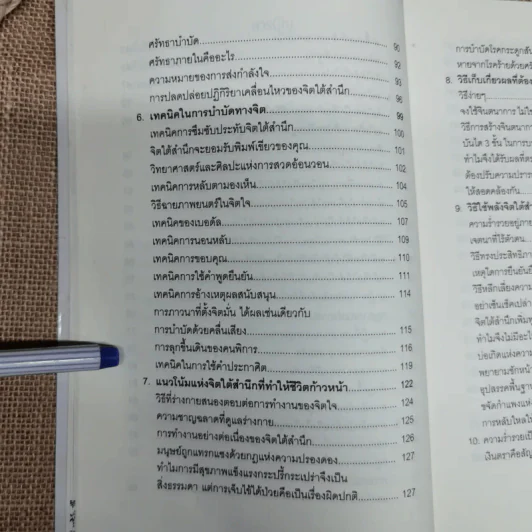 ศรัทธาบำบัด 90
ศรัทธาภายในคืออะไร 92
ความหมายของการส่งกำลังใจ 93
การปลดปล่อยปฏิกิริยาเคลื่อนไหวของจิตใต้สำนึก 96
6. เทคนิคในการบำบัดทางจิต 99
เทคนิคการซึมซับประทับจิตใต้สำนึก 100
จิตใต้สำนึกจะยอมรับพิมพ์เขียวของคุณ 101
วิทยาศาสตร์และศิลปะแห่งการสวดอ้อนวอน 102
เทคนิคการหลับตามองเห็น 104
วิธีฉายภาพยนตร์ในจิตใจ 105
เทคนิคของเบอดัล 107
เทคนิคการนอนหลับ 109
เทคนิคการขอบคุณ 110
เทคนิคการใช้คำพูดยืนยัน 111
เทคนิคการอ้างเหตุผลสนับสนุน 114
การภาวนาที่ตั้งจิตมั่น ได้ผลเช่นเดียวกับ
การบำบัดด้วยคลื่นเสียง 115
การลุกขึ้นเดินของคนพิการ 116
เทคนิคในการใช้คำประกาศิต 119
7. แนวโน้มแห่งจิตใต้สำนึกที่ทำให้ชีวิตก้าวหน้า 122
วิธีที่ร่างกายสนองตอบต่อการทำงานของจิตใจ 124
ความชาญฉลาดที่ดูแลร่างกาย 125
การทำงานอย่างต่อเนื่องของจิตใต้สำนึก 126
มนุษย์ถูกแทรกแซงด้วยกฎแห่งความปรองดอง 127
ทำไมการมีสุขภาพแข็งแรงกระปรี้กระเปร่าจึงเป็น
สิ่งธรรมดา แต่การเจ็บไข้ได้ป่วยคือเป็นเรื่องผิดปกติ 127
การบำบัดโรคกระดูกสัน
หายจากโรคร้ายด้วย
8. วิธีเก็บเกี่ยวผลที่ต้อง
วิธีง่ายๆ
จงใช้จินตนาการ
วิธีการสร้างจินตนา
บันได 3 ขั้น ในการบ
ทำไมจึงได้รับผลที่ตร
ต้องปรับความปรารถ
ให้สอดคล้องกัน
9. วิธีใช้พลังจิตใต้สำ
ความร่ำรวยอยู่ภาย
เจตนาที่ไร้ตัวตน
วิธีทรงประสิทธิภา
เหตุใดการยืนยันถึ
วิธีหลีกเลี่ยงความ
จิตใต้สำนึกเพิ่มพู
ทำไมจึงไม่มีอะไ
บ่อเกิดแห่งความ
พยายามชักหน้า
อุปสรรคพื้นฐา
ขจัดกำแพงแห่ง
การหลับใหล
10. ความร่ำรวยเป็
เงินตราคือสัญ